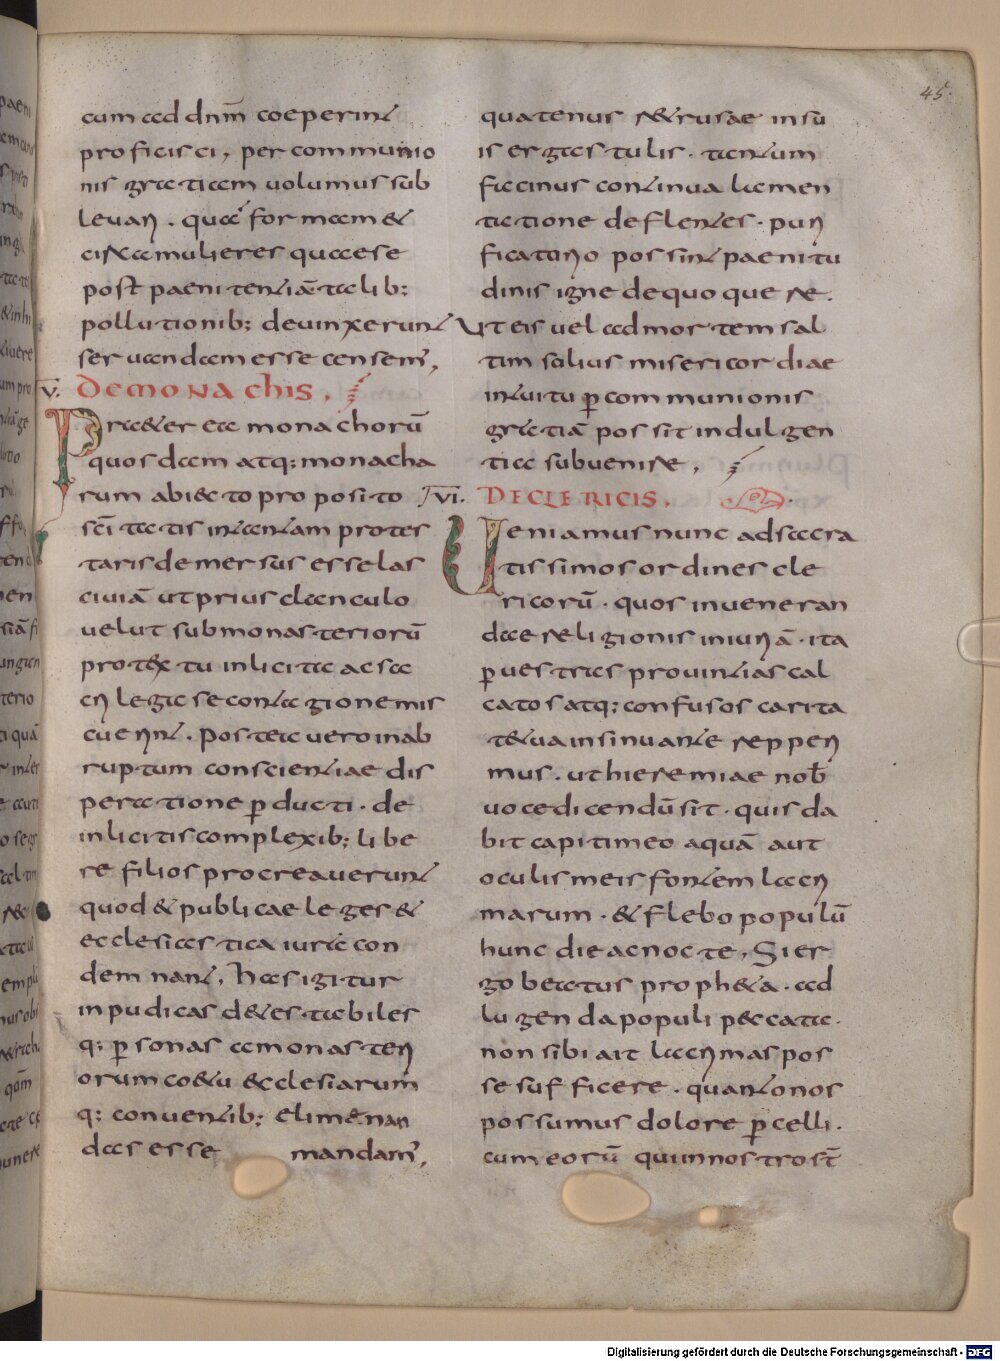 45.
cum ad dnm̄ coeperint
proficisci, per commu nio
nis gratiam uolumus sub
leuari. quā formam &
circa mulieres quae se
post paenitentiā talib;
pollutionib; deuinxerunt
seruandam esse censem',
V. DE MONACHIS.
Praeter ea monachorū
quosdam atq; monacha
rum abiecto proposito
sc̄i tatis in tantam protes
taris demersus esse las
ciuiā ut prius clanculo
uelut sub monasteriorū
protextu inlicita ac sa
crilega se contagione mis
cuerint. postea uero inab
ruptum conscientiae dis
peratione ꝑducti. de
inlicitis complexib; libe
re filios procreauerunt
quod & publicae leges &
ecclesiastica iura con
demnant, has igitur
inpudicas d&estabiles
q; ꝑsonas a monasteri
orum co&u &cclesiarum
q; conuentib; elimenan
das esse mandam',
quatenus r&rusae in su
is ergastulis. tantum
facinus continua lamen
tatione deflentes. puri
ficatorio possint paenitu
dinis igne dequoquere.
Ut eis uel ad mortem sal
tim solius misericordiae
intuitu ꝑ communionis
gratiā possit indulgen
tia subuenire,
VI. DE CLERICIS.
Ueniamus nunc ad sacra
tissimos ordines cle
ricorū. quos in ueneran
dae religionis iniuriā. ita
ꝑ uestras prouintias cal
catos atq; confusos carita
te tua insinuante repperi
mus. ut hieremiae nob̄
uoce dicendū sit. quis da
bit capiti meo aquā aut
oculis meis fontem lacri
marum. & flebo populū
hunc die ac nocte, Si er
go beatus proph&a. ad
lugenda populi peccata.
non sibi ait lacrimas pos
se sufficere. quanto nos
possumus dolore ꝑcelli.
cum eorū qui in nostro st̄
Digitalisierung gefördert durch die Deutsche Forschungsgemeinschaft - DFG